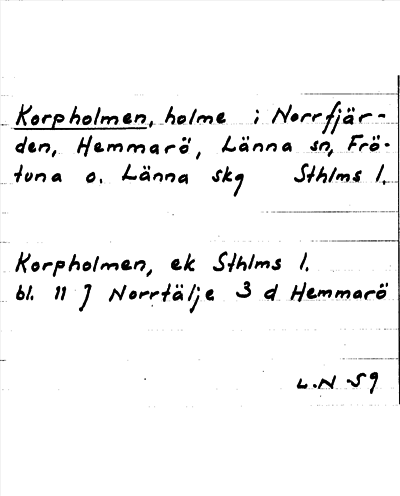 Korpholmen, holme i Norrfjär-
den, Hemmarö, Länna sn, Frö-
tuna o. Länna skg Sthlms l.
Korpholmen, ek Sthlms l.
bl. 11 J Norrtälje 3 d Hemmarö
L.N 59